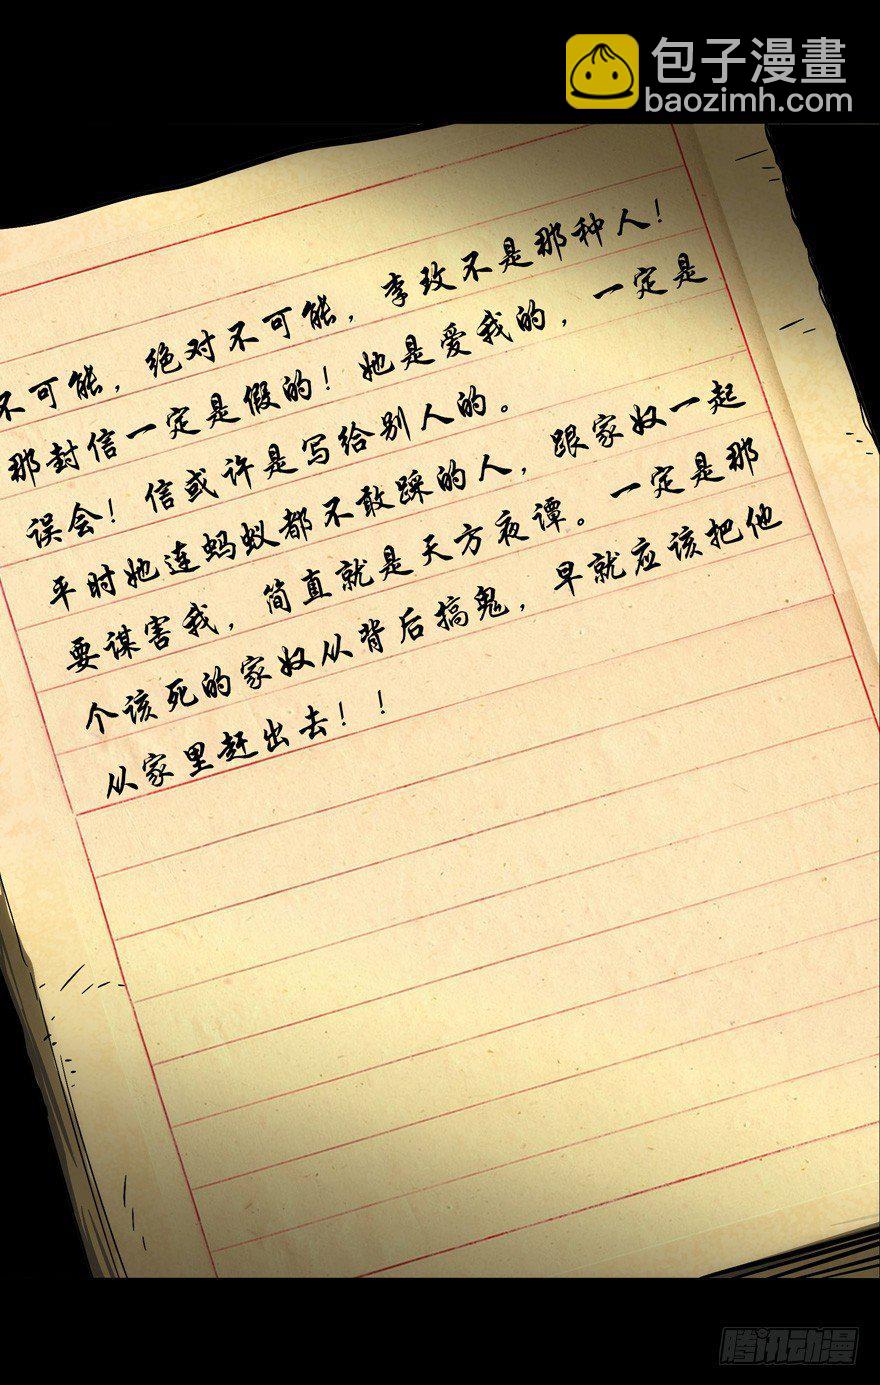 包子漫畫
baozimh.com
不可能，绝对不可能，李玫不是那种人！
那封信一定是假的！她是爱我的，一定是
误会！信或许是写给别人的。
平时她连蚂蚁都不敢踩的人，跟家奴一起
要谋害我，简直就是天方夜谭。一定是那
个该死的家奴从背后搞鬼，早就应该把他
从家里赶出去！！
腾讯动漫